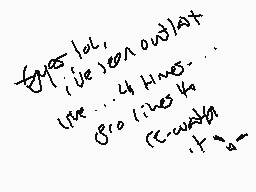 types lol,
i've seen outlast
live... 4 times...
gro likes to
re-watch
it ^-^